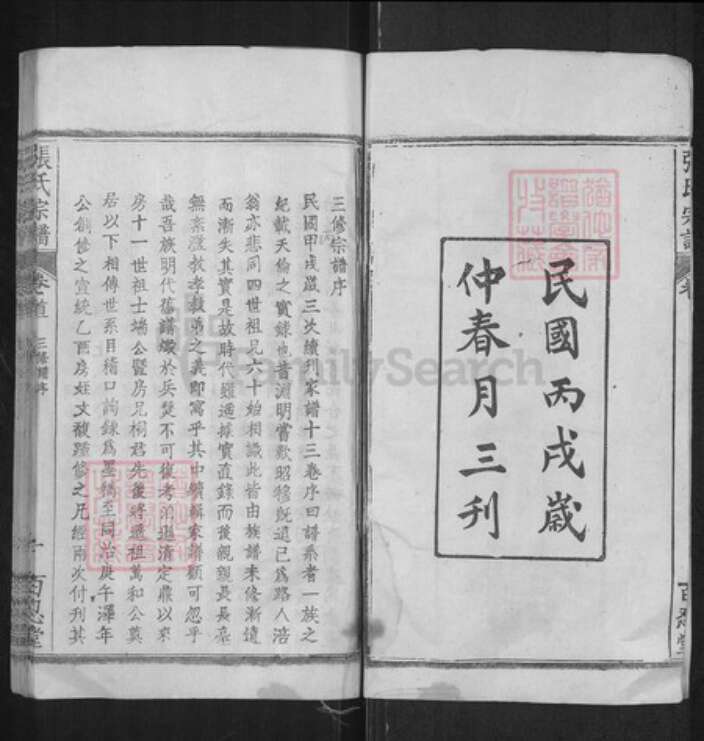 民國丙戌歲
仲春月三刊
張氏宗譜
百忍堂
三修宗譜序
民國甲戌歲三次續刊家譜十三卷序曰譜系者一族之
紀載天倫之實錄也昔淵明嘗歎昭穆既遠已為路人涪
翁亦悲同四世祖兄六十始相識此皆由族譜未修漸遠
而漸失其實是故時代雖遙據實直錄而後親親長長
無紊
孝教弟之義即寓乎其中續輯家譜顧可忽乎
哉吾族明代舊譜燬於兵燹不可復考
遜清定鼎以來
房十一世祖士端公暨房兄
君先後將遷祖萬和公奠
居以下相傳世系目稽口詢錄為墨稿至同治庚午澤年
公創修之宣統乙酉房姪文馥踵修之凡經兩次付刊其
張氏宗譜
卷首
三修譜序
一
百忍堂
FamilySearch